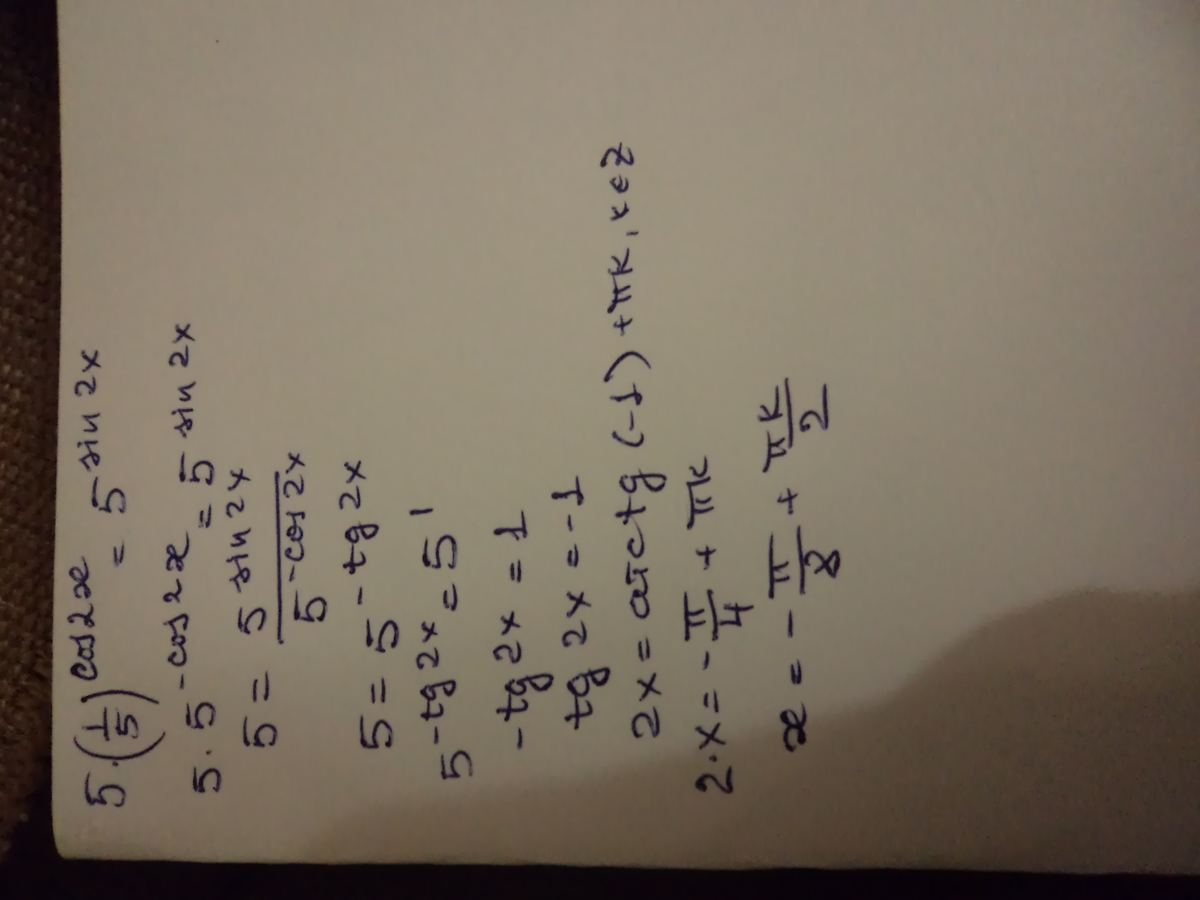 5·(1/5)^cos2x = 5^sin2x
5·5^-cos2x = 5^sin2x
5 = 5^sin2x / 5^-cos2x
5 = 5^-tg2x
5^-tg2x = 5^1
-tg2x = 1
tg2x = -1
2x = arctg(-1) + πk, k∈Z
2·x = -π/4 + πk
x = -π/8 + πk/2